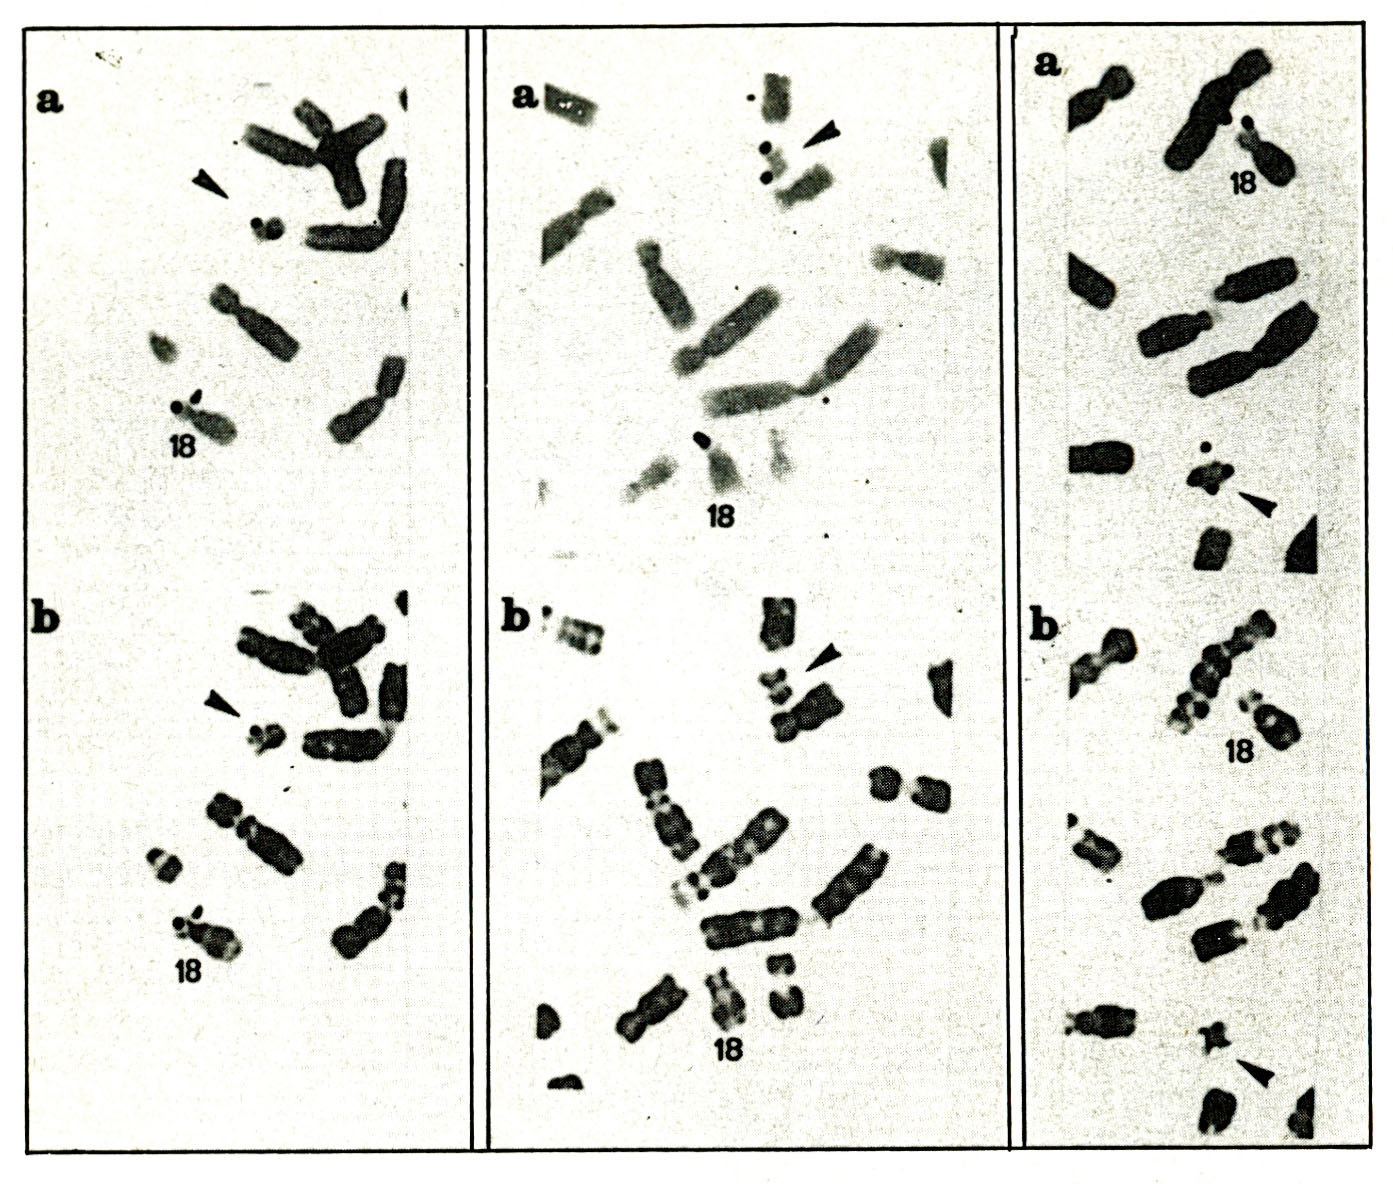 a
18
b
18
a
18
b
18
a
18
b
18